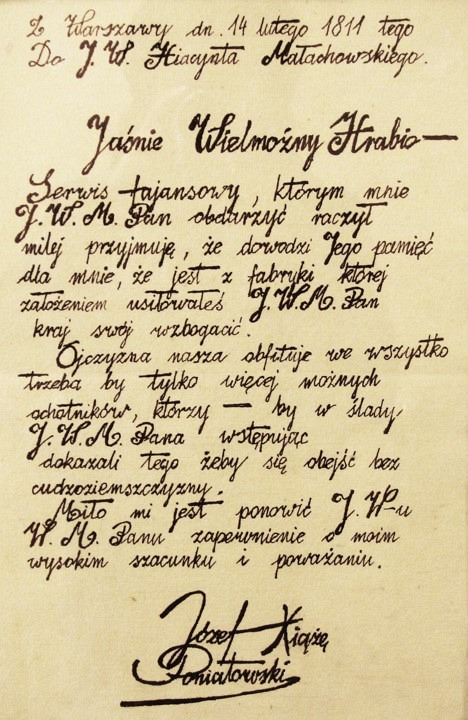 Z Warszawy dn. 14 lutego 1811 tego
Do J. W. Hiacynta Małachowskiego.
Jaśnie Wielmożny Hrabio —
Serwis fajansowy, którym mnie
J. W. M. Pan obdarzyć raczył
milej przyjmuję, że dowodzi Jego pamięć
dla mnie, że jest z fabryki której
założeniem usiłowałeś J.W.M. Pan
kraj swój wzbogacić.
Ojczyzna nasza obfituje we wszystko
trzeba by tylko więcej możnych
ochotników, którzy — by w ślady
J. W. M. Pana wstępując
dokazali tego żeby się obejść bez
cudzoziemszczyzny.
Miło mi jest ponowić J. W-u
W. M. Panu zapewnienie o moim
wysokim szacunku i poważaniu.
Józef Książę
Poniatowski